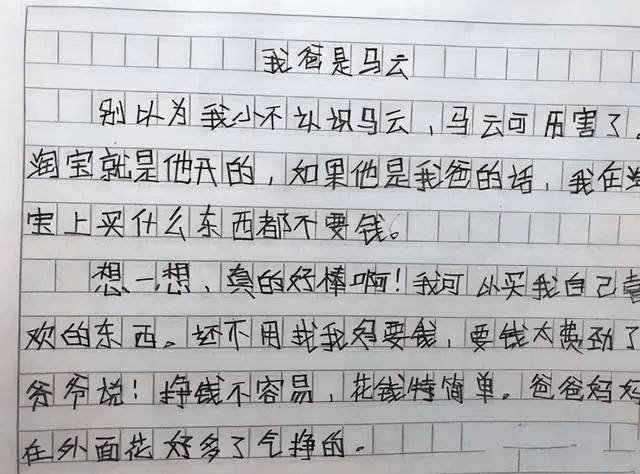 我爸是马云
别以为我小不认识马云，马云可历害了。
淘宝就是他开的，如果他是我爸的话，我在淘
宝上买什么东西都不要钱。
想一想，真的好棒啊！我可以买我自己喜
欢的东西。还不用找我妈要钱，要钱太费劲了
爷爷说：挣钱不容易，花钱特简单。爸爸妈妈
在外面花好多了气挣的。